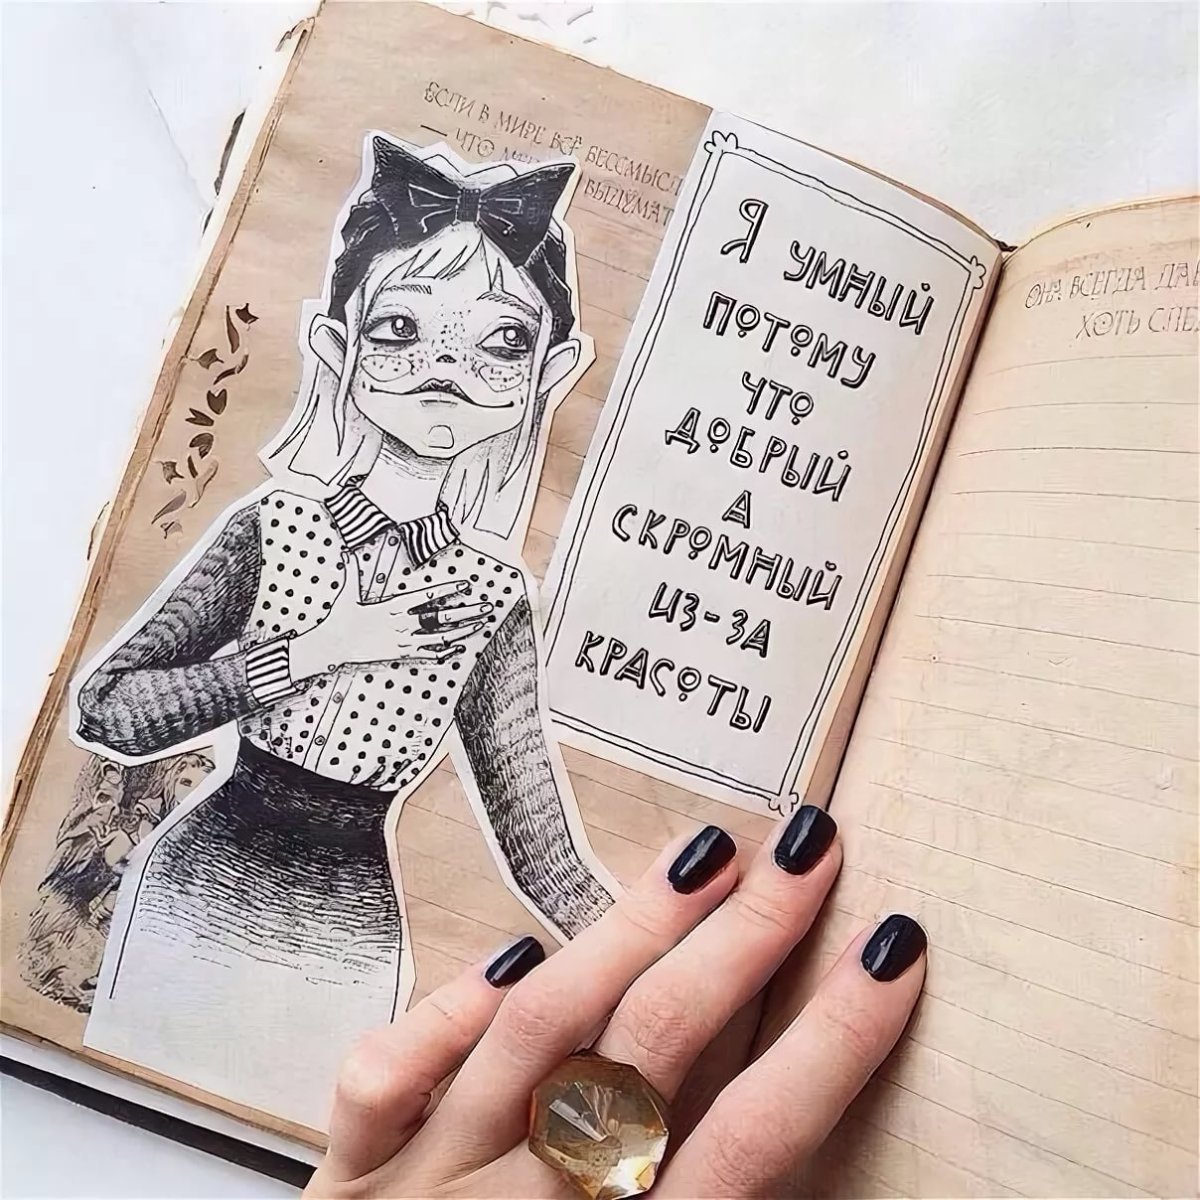 ЕСЛИ В МИРЕ ВСЁ БЕССМЫСЛ
— ЧТО
ВЫДУМАТ
Я УМНЫЙ
ПОТОМУ
ЧТО
ДОБРЫЙ
А
СКРОМНЫЙ
ИЗ-ЗА
КРАСОТЫ
ОНА ВСЕГДА ДА
ХОТЬ СЛЕ